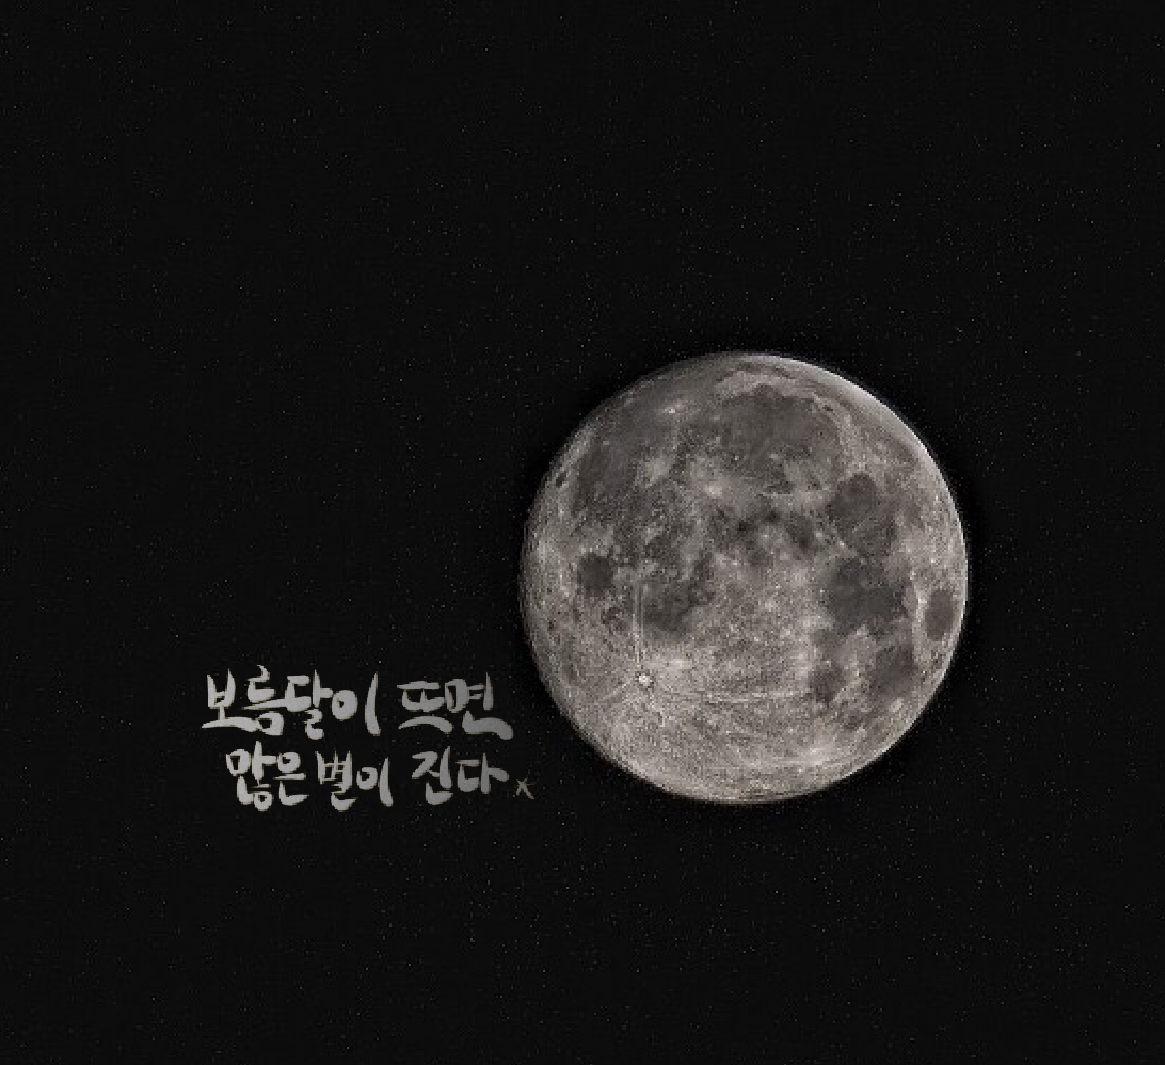 보름달이 뜨면
많은 별이 진다